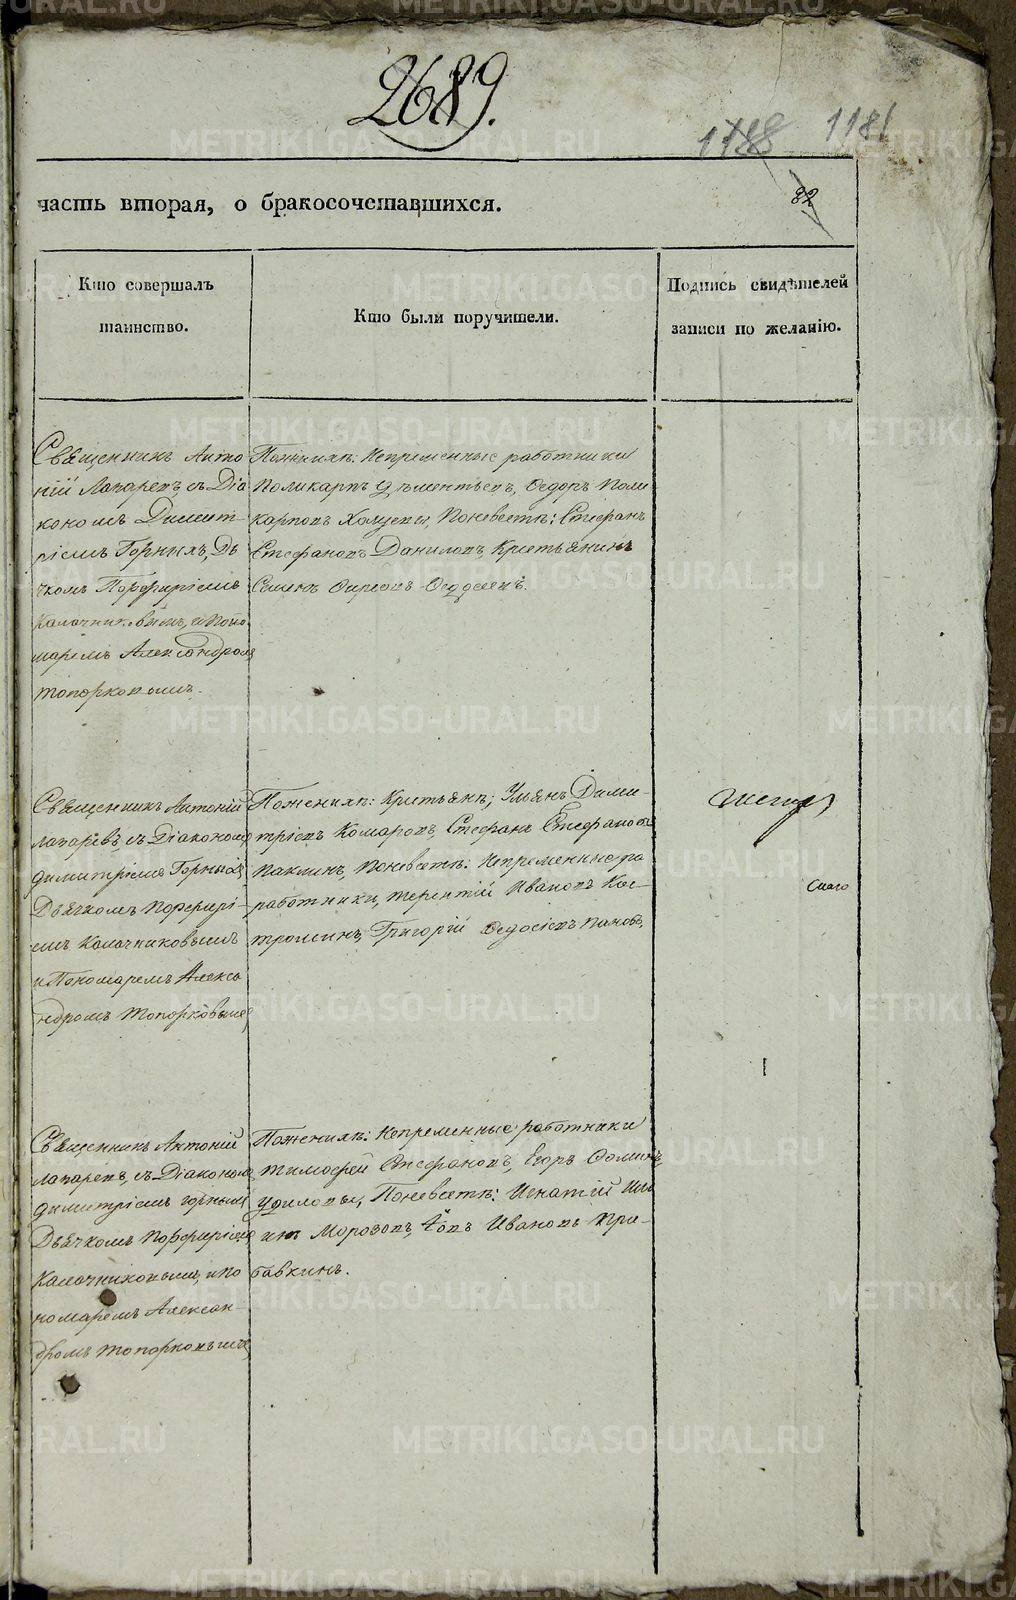 2689.
1788 1181
часть вторая, о бракосочетавшихся.
82
Кто совершалъ
таинство.
Кто были поручители.
Подпись свидѣтелей
записи по желанію.
Священникъ Анто
ній Лапаревъ, съ Діа
кономъ Димит-
ріемъ Горныхъ, Дь
чкомъ Порфиріемъ
Калачниковымъ, и Поно
маремъ Александромъ
Топорковымъ.
Поженихѣ: Непременные работники
Поликарпъ Дѣментьевъ, Ѳедоръ Поли
карповъ Поневестѣ: Стефанъ
Стефановъ Даниловъ, Крестьянинъ
Священникъ Антоній
Лапаревъ, съ Діакономъ
Димитріемъ Горныхъ
Дьячкомъ Порфирі-
емъ Калачниковымъ
и Пономаремъ Алекса
ндромъ Топорковымъ,
Поженихѣ: Крестьянѣ; Ульянъ Дими-
тріевъ Комаровъ, Стефанъ Стефановъ
Паклинъ, Поневестѣ: Непременные ра
работники, Терентій Ивановъ Кос-
троминъ, Григорій Ѳедосіевъ Пановъ,
Священникъ Антоній
Лапаревъ, съ Діакономъ
Димитріемъ Горныхъ
Дьячкомъ Порфиріемъ
Калачниковымъ, и По
номаремъ Алексан-
дромъ Топорковымъ,
Поженихѣ: Непременные работники
Тимофей Стефановъ, Егоръ Ѳоминъ
Удиловы, Поневестѣ: Игнатій
Морозовъ, Ивановъ При-
бавкинъ.
METRIKI.GASO-URAL.RU